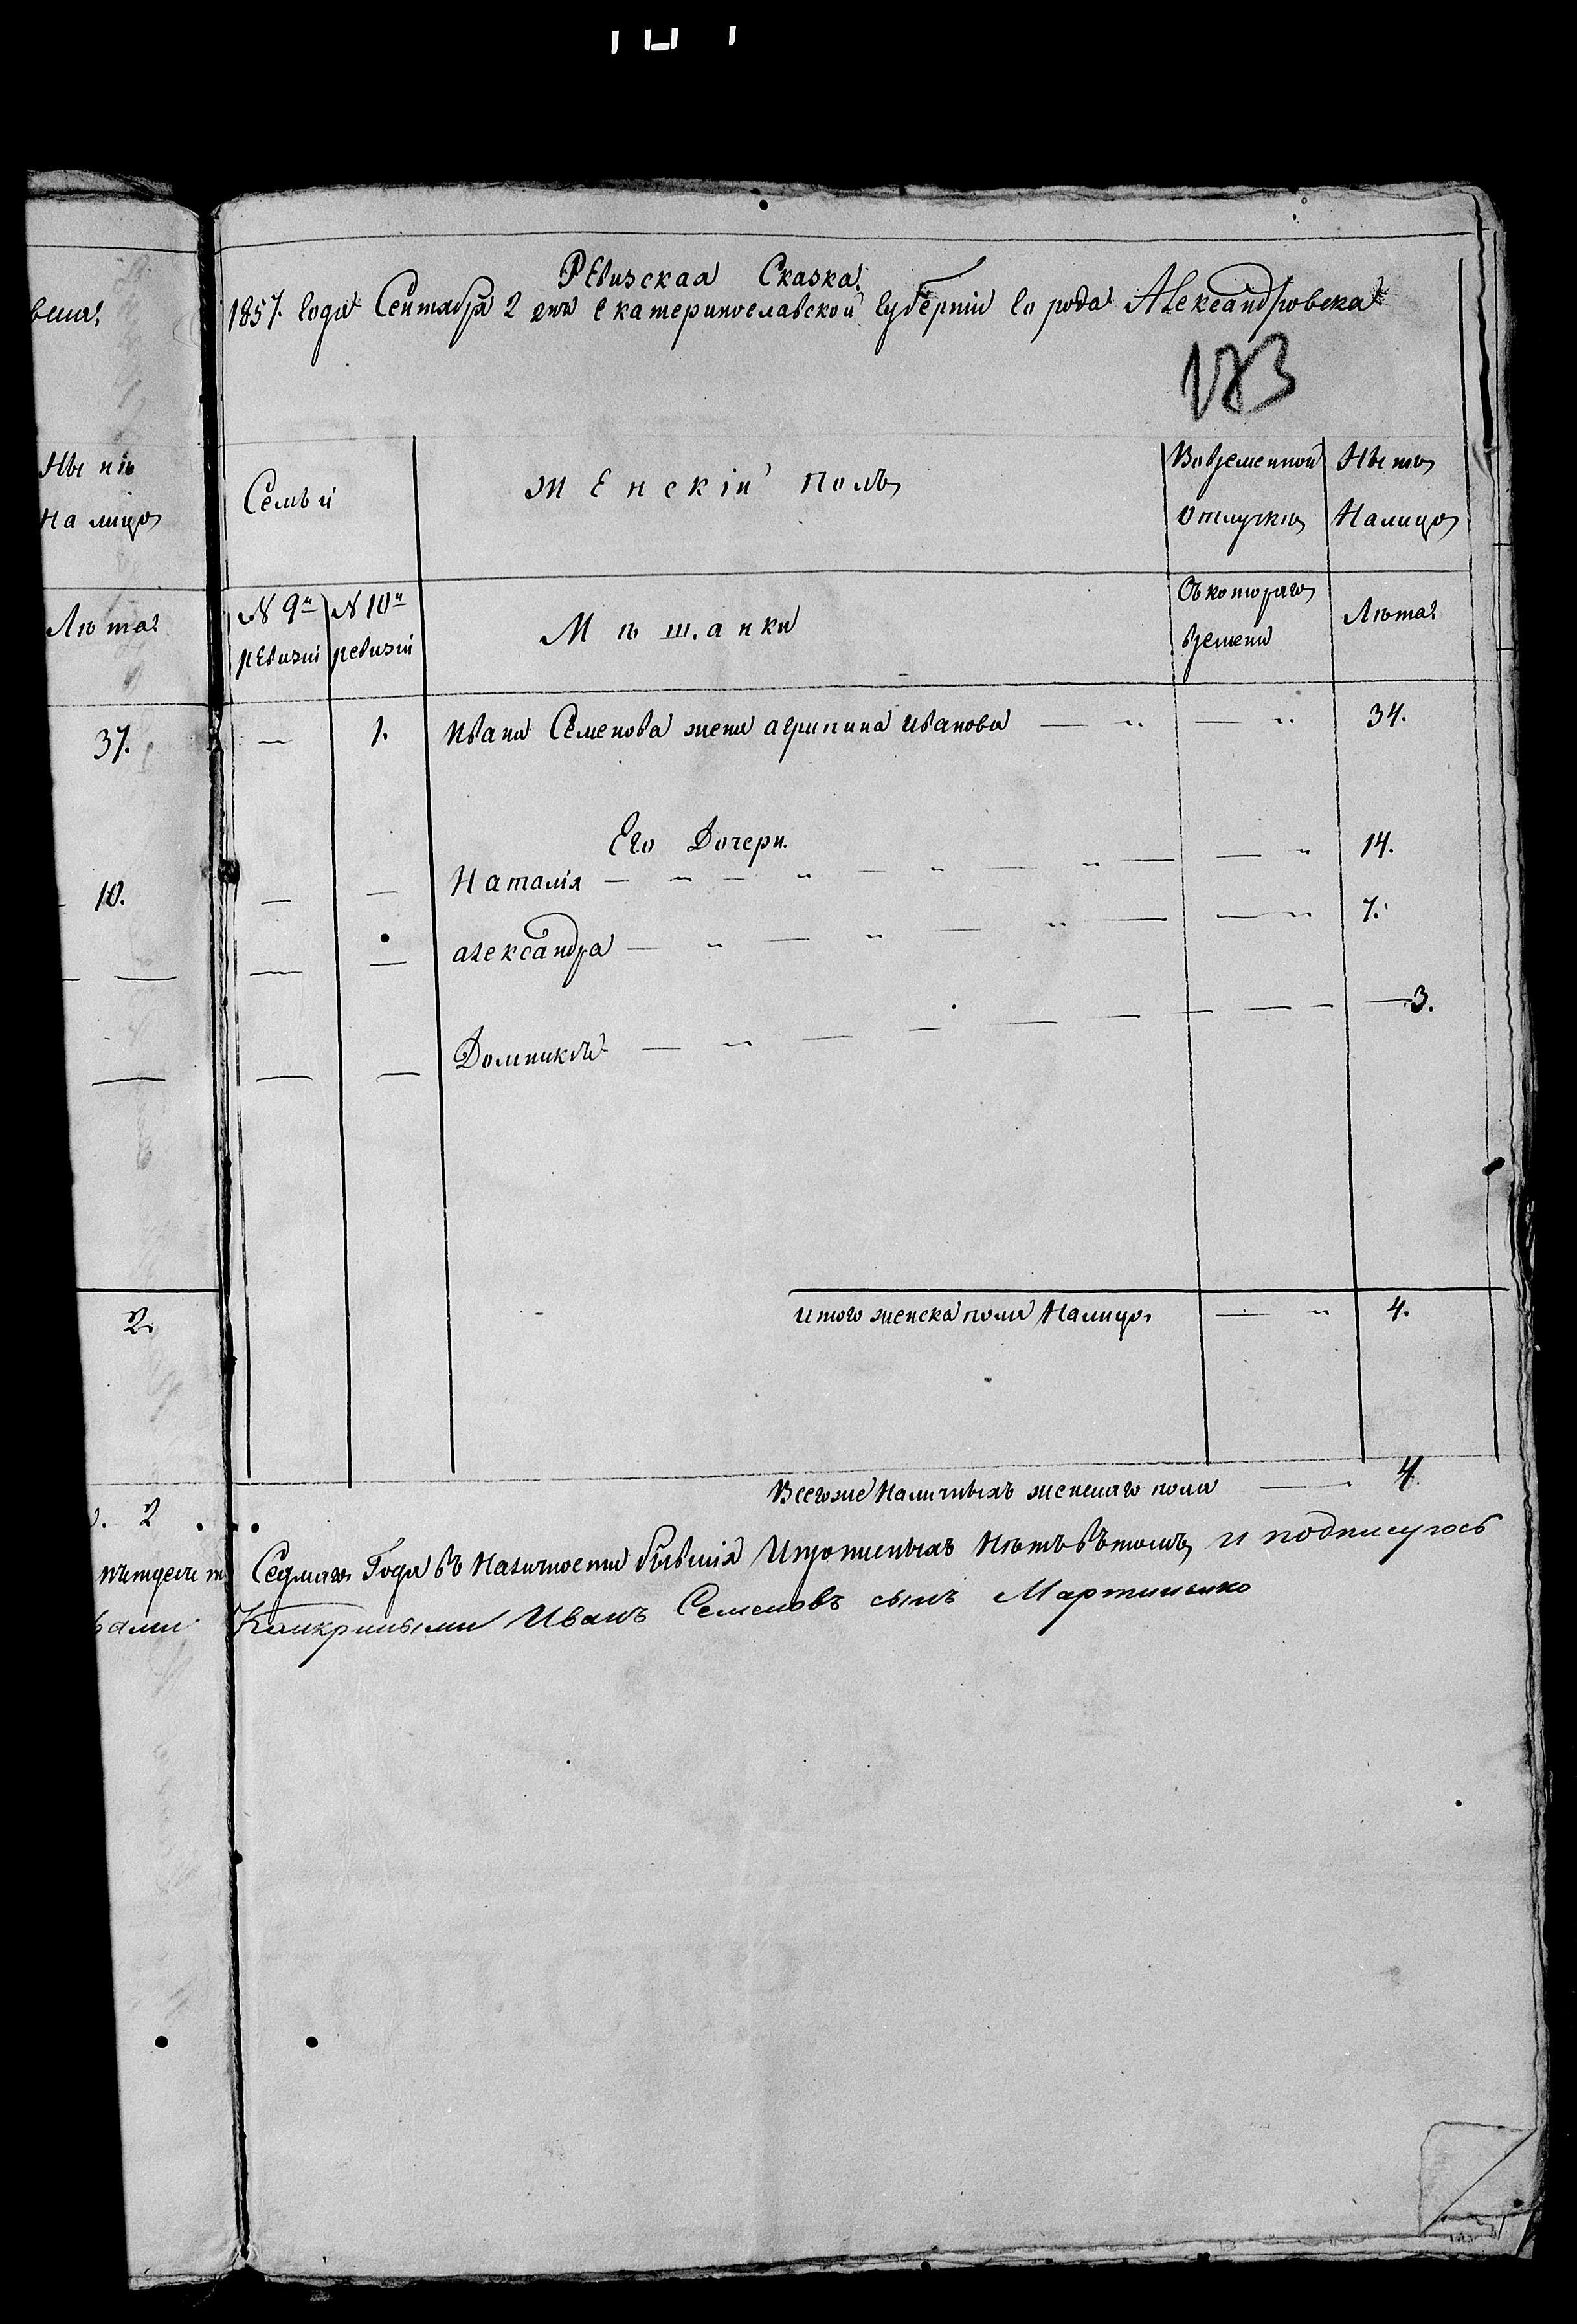 вска
Ныне
На лицо
Лета
37.
10.
2.
2
Ревизская Сказка.
1857. года Сентября 2 дня Екатеринославской Губернии города Александровска
183
Семьи
Женскій полъ
Вовременной отлучке
Ныне Налицо
N 9й ревизіи
N 10й ревизіи
Мѣщанки
Съ котораго времени
Лѣта
— 1. Ивана Семенова жена агрипина иванова — „ — „ 34.
Его Дочери.
— — Наталія — „ — „ — „ — „ — — „ 14.
— — александра — „ — „ — „ — — „ 7.
— — Домникія — „ — — — — — — — 3.
итого женска пола Налицо. — „ 4.
Всегоже Наличныхъ женскаго пола — 4
Седмаго Года въ Наличности бывшія Ипрописныхъ Нѣтъ вътомъ и подписуюсь
Иванъ Семеновъ сынъ Мартиненко